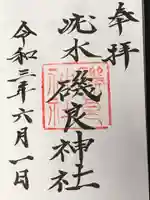 奉拝
疣水
磯良神社
令和三年六月一日